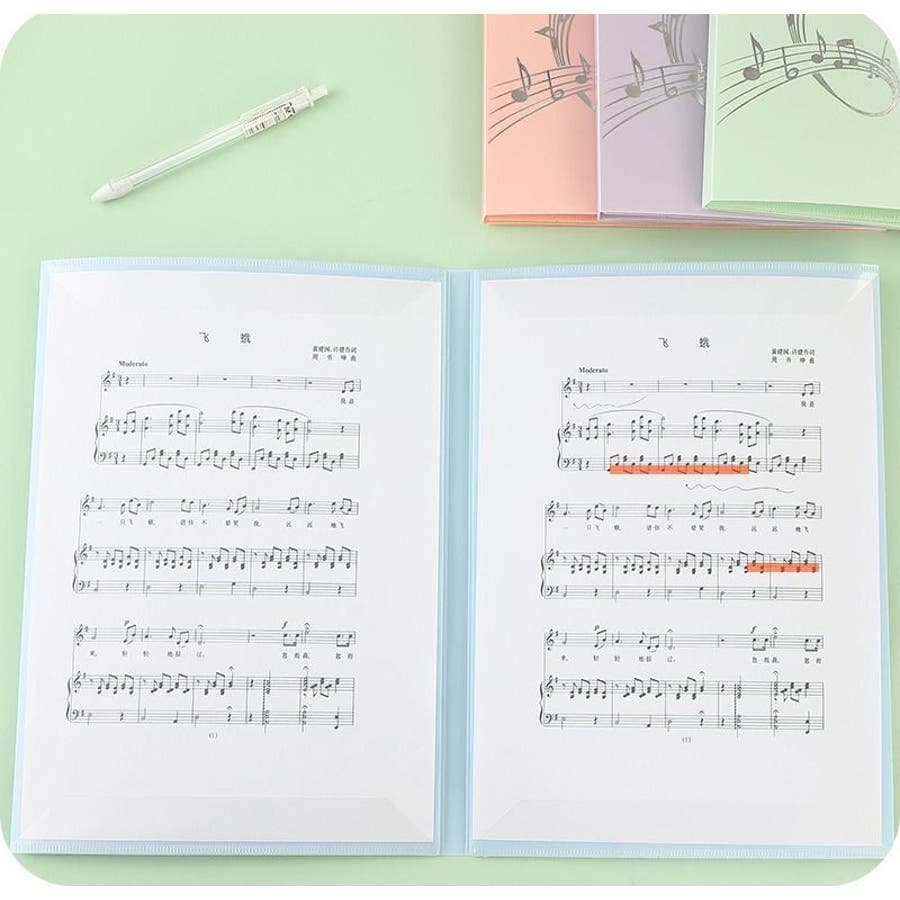 飞 蛾
黄健国、许健吾词
周 书 坤 曲
Moderato
我是
一 只飞 蛾， 请你 不 要笑 我， 远 远地飞
来， 轻轻 地掠 过。
(1)
飞 蛾
黄健国、许健吾词
周 书 坤 曲
Moderato
我是
一 只飞 蛾， 请你 不 要笑 我， 远 远地飞
来， 轻轻 地掠 过。
(1)